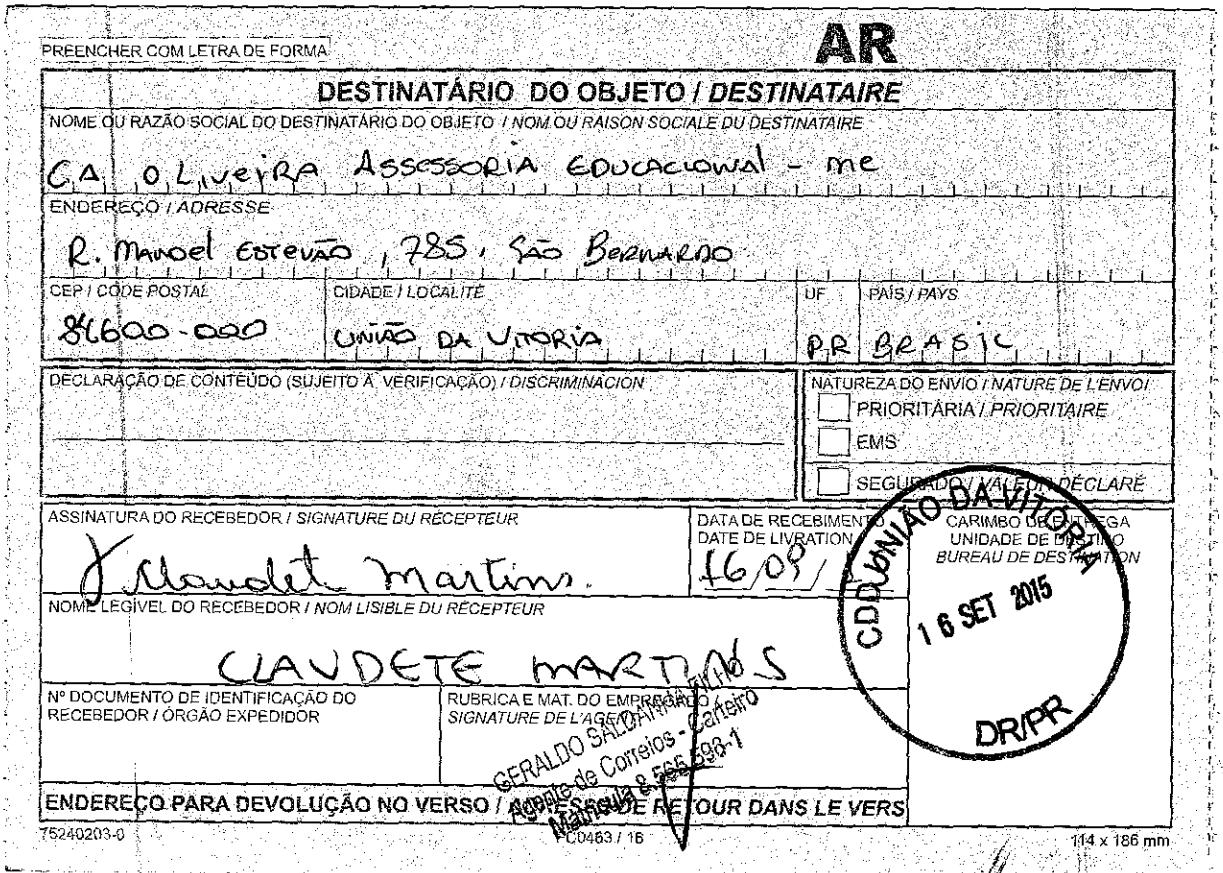 AR
PREENCHER COM LETRA DE FORMA
DESTINATÁRIO DO OBJETO / DESTINATAIRE
NOME OU RAZÃO SOCIAL DO DESTINATÁRIO DO OBJETO / NOM OU RAISON SOCIALE DU DESTINATAIRE
C.A. OLIVEIRA ASSESSORIA EDUCACIONAL - ME
ENDEREÇO / ADRESSE
R. MANOEL ESTEVÃO, 785, SÃO BERNARDO
CEP / CODE POSTAL CIDADE / LOCALITÉ UF PAÍS / PAYS
84600-000 UNIÃO DA VITORIA PR BRASIL
DECLARAÇÃO DE CONTEÚDO (SUJEITO À VERIFICAÇÃO) / DISCRIMINACION
NATUREZA DO ENVIO / NATURE DE L'ENVOI
PRIORITÁRIA / PRIORITAIRE
EMS
SEGURADO / VALEUR DÉCLARÉ
ASSINATURA DO RECEBEDOR / SIGNATURE DU RÉCEPTEUR
Claudete Martins.
DATA DE RECEBIMENTO
DATE DE LIVRATION
16/09/
CARIMBO DE ENTREGA
UNIDADE DE DESTINO
BUREAU DE DESTINATION
CDD UNIÃO DA VITÓRIA
16 SET 2015
DR/PR
NOME LEGÍVEL DO RECEBEDOR / NOM LISIBLE DU RÉCEPTEUR
CLAUDETE MARTINS
Nº DOCUMENTO DE IDENTIFICAÇÃO DO
RECEBEDOR / ÓRGÃO EXPEDIDOR
RUBRICA E MAT. DO EMPREGADO /
SIGNATURE DE L'AGENT
GERALDO SALDANHA FILHO
Agente de Correios - Carteiro
Matrícula 8.565.598-1
ENDEREÇO PARA DEVOLUÇÃO NO VERSO / ADRESSE DE RETOUR DANS LE VERS
75240203-0 FC0463 / 16 114 x 186 mm